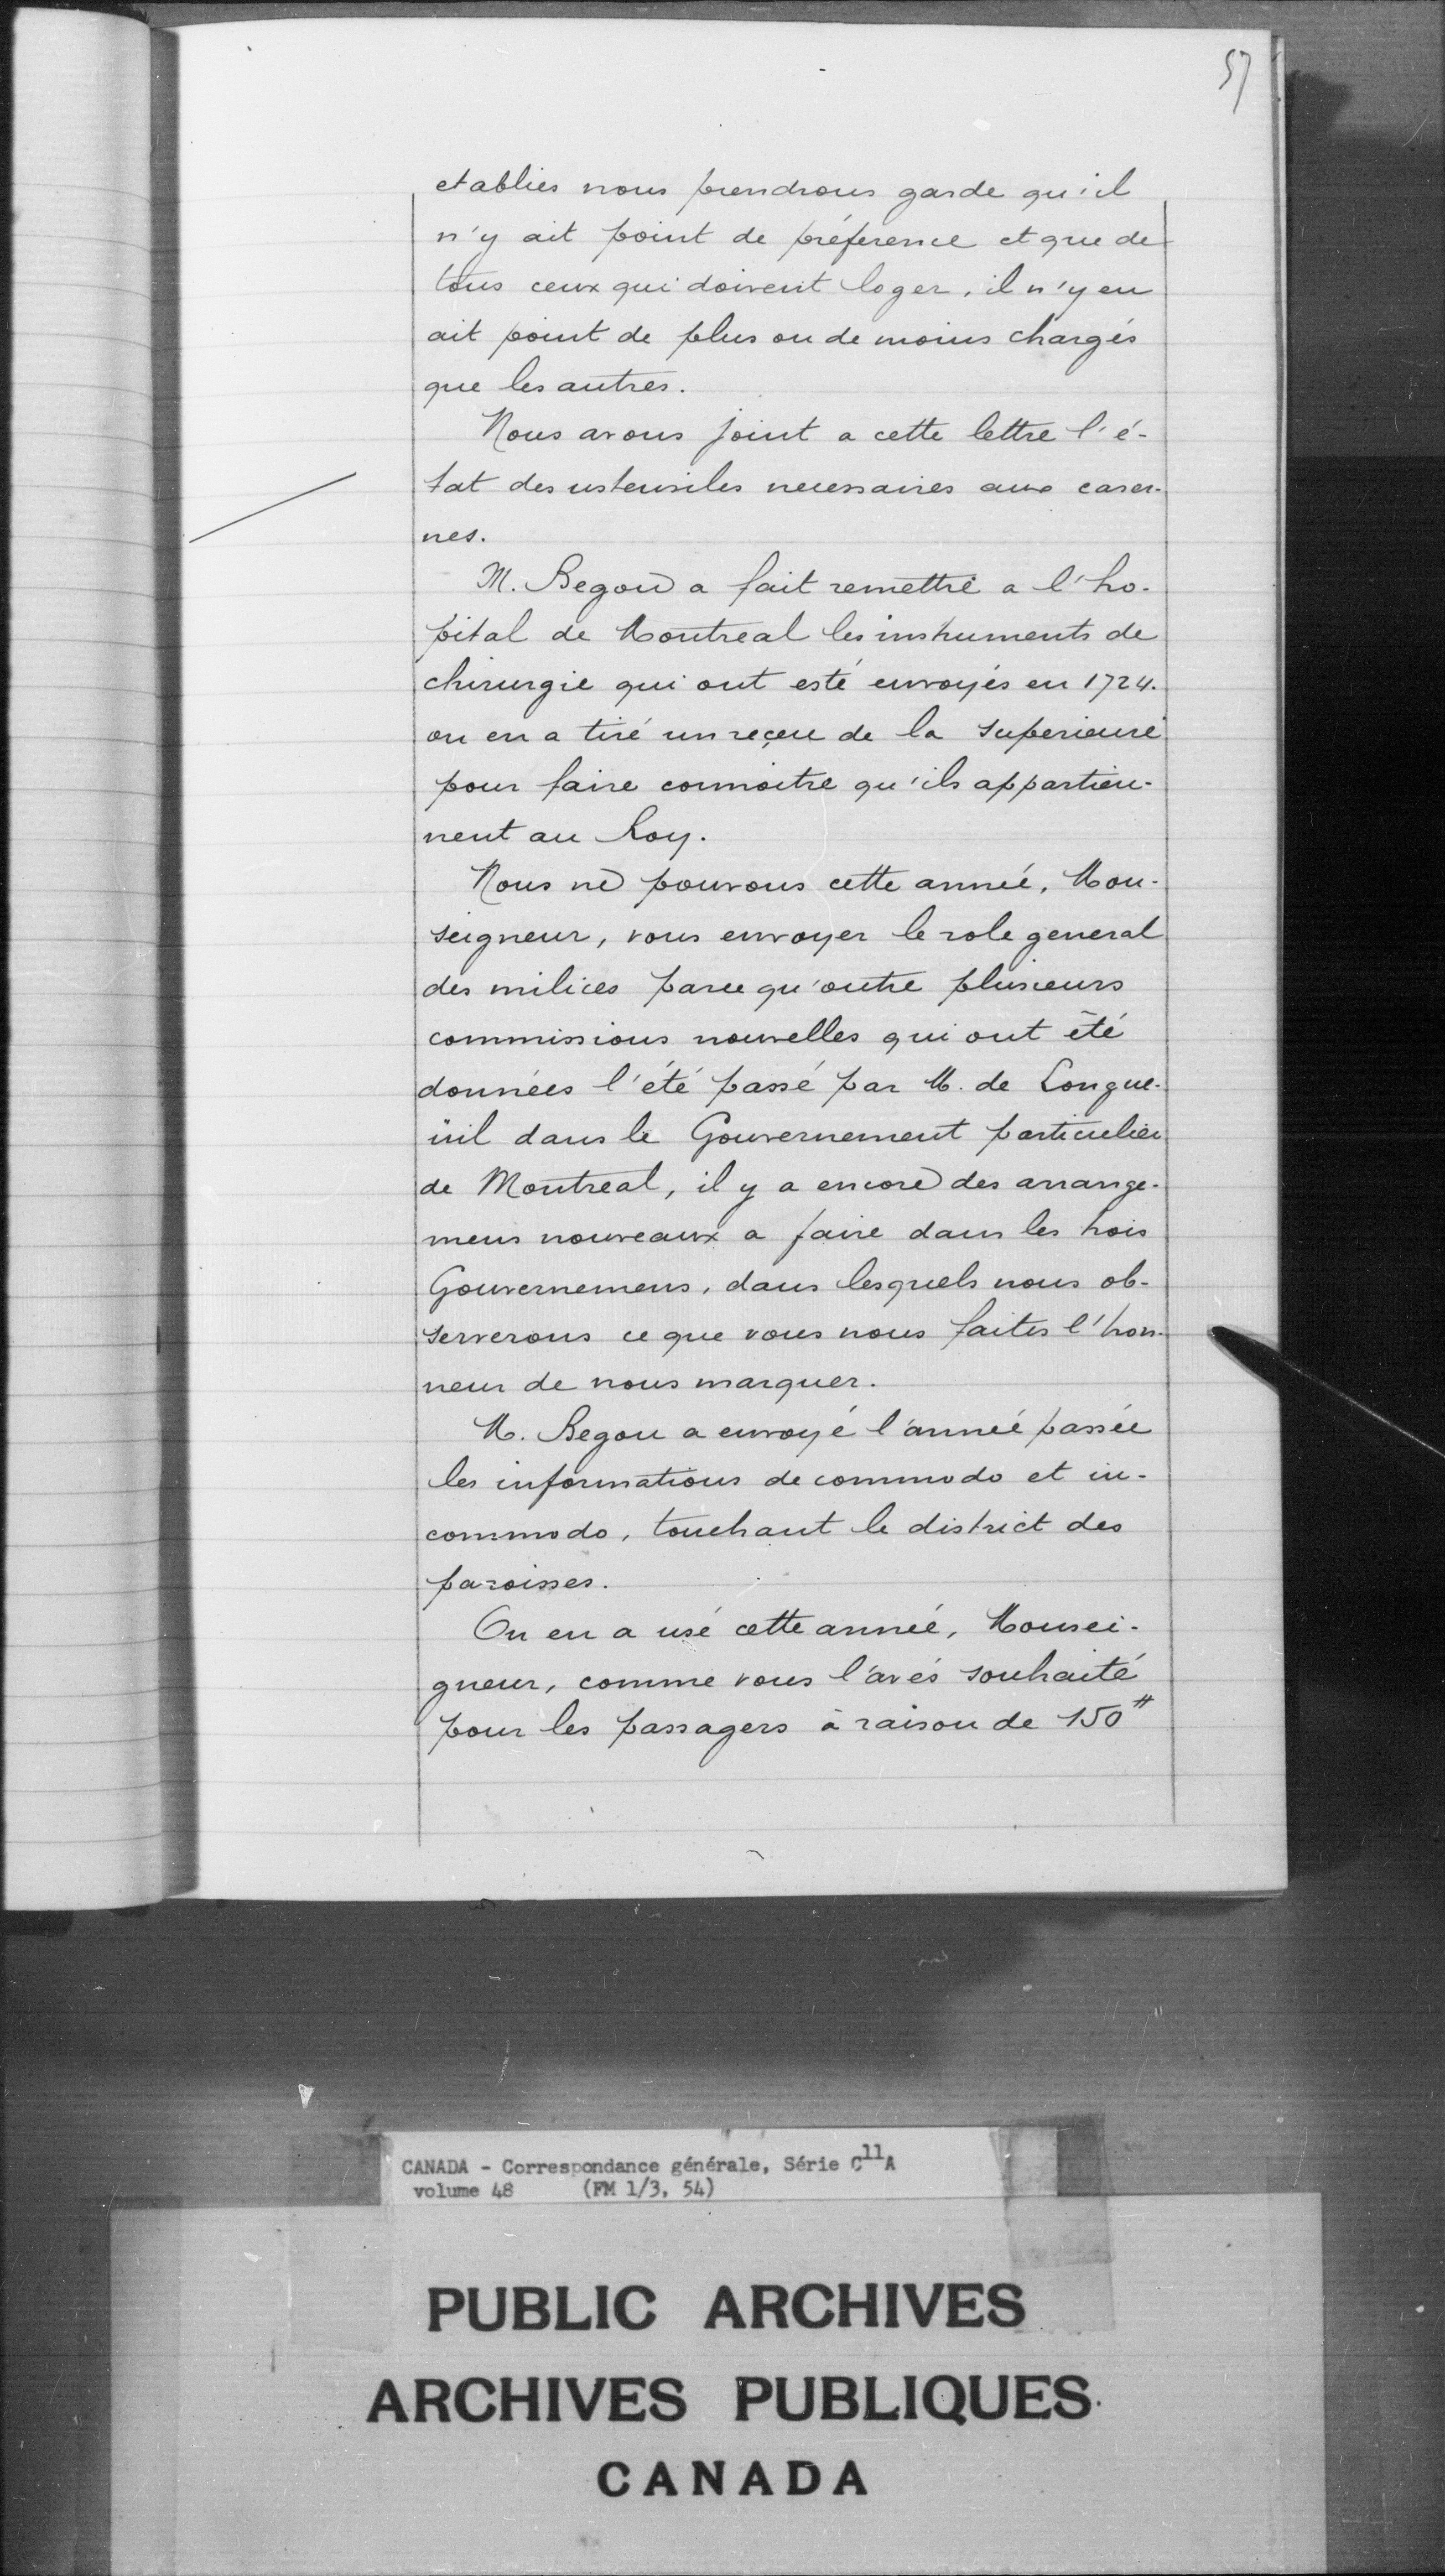 57
etablies nous prendrons garde qu'il
n'y ait point de préference et que de
tous ceux qui doivent loger, il n'y en
ait point de plus ou de moins chargés
que les autres.
Nous avons joint a cette lettre l'é-
tat des ustensiles necessaires aux caser-
nes.
M. Begon a fait remettre a l'ho-
pital de Montreal les instruments de
chirurgie qui ont esté envoyés en 1724.
on en a tiré un reçeu de la superieure
pour faire connoitre qu'ils appartien-
nent au Roy.
Nous ne pouvons cette année, Mon-
seigneur, vous envoyer le role general
des milices parce qu'outre plusieurs
commissions nouvelles qui ont été
données l'été passé par M. de Longue-
üil dans le Gouvernement particulier
de Montreal, il y a encore des arrange-
mens nouveaux a faire dans les trois
Gouvernemens, dans lesquels nous ob-
serverons ce que vous nous faites l'hon-
neur de nous marquer.
M. Begon a envoyé l'année passée
les informations de commodo et in-
commodo, touchant le district des
paroisses.
On en a usé cette année, Monsei-
gneur, comme vous l'avés souhaité
pour les passagers à raison de 150#
CANADA - Correspondance générale, Série C11A
volume 48 (FM 1/3, 54)
PUBLIC ARCHIVES
ARCHIVES PUBLIQUES
CANADA